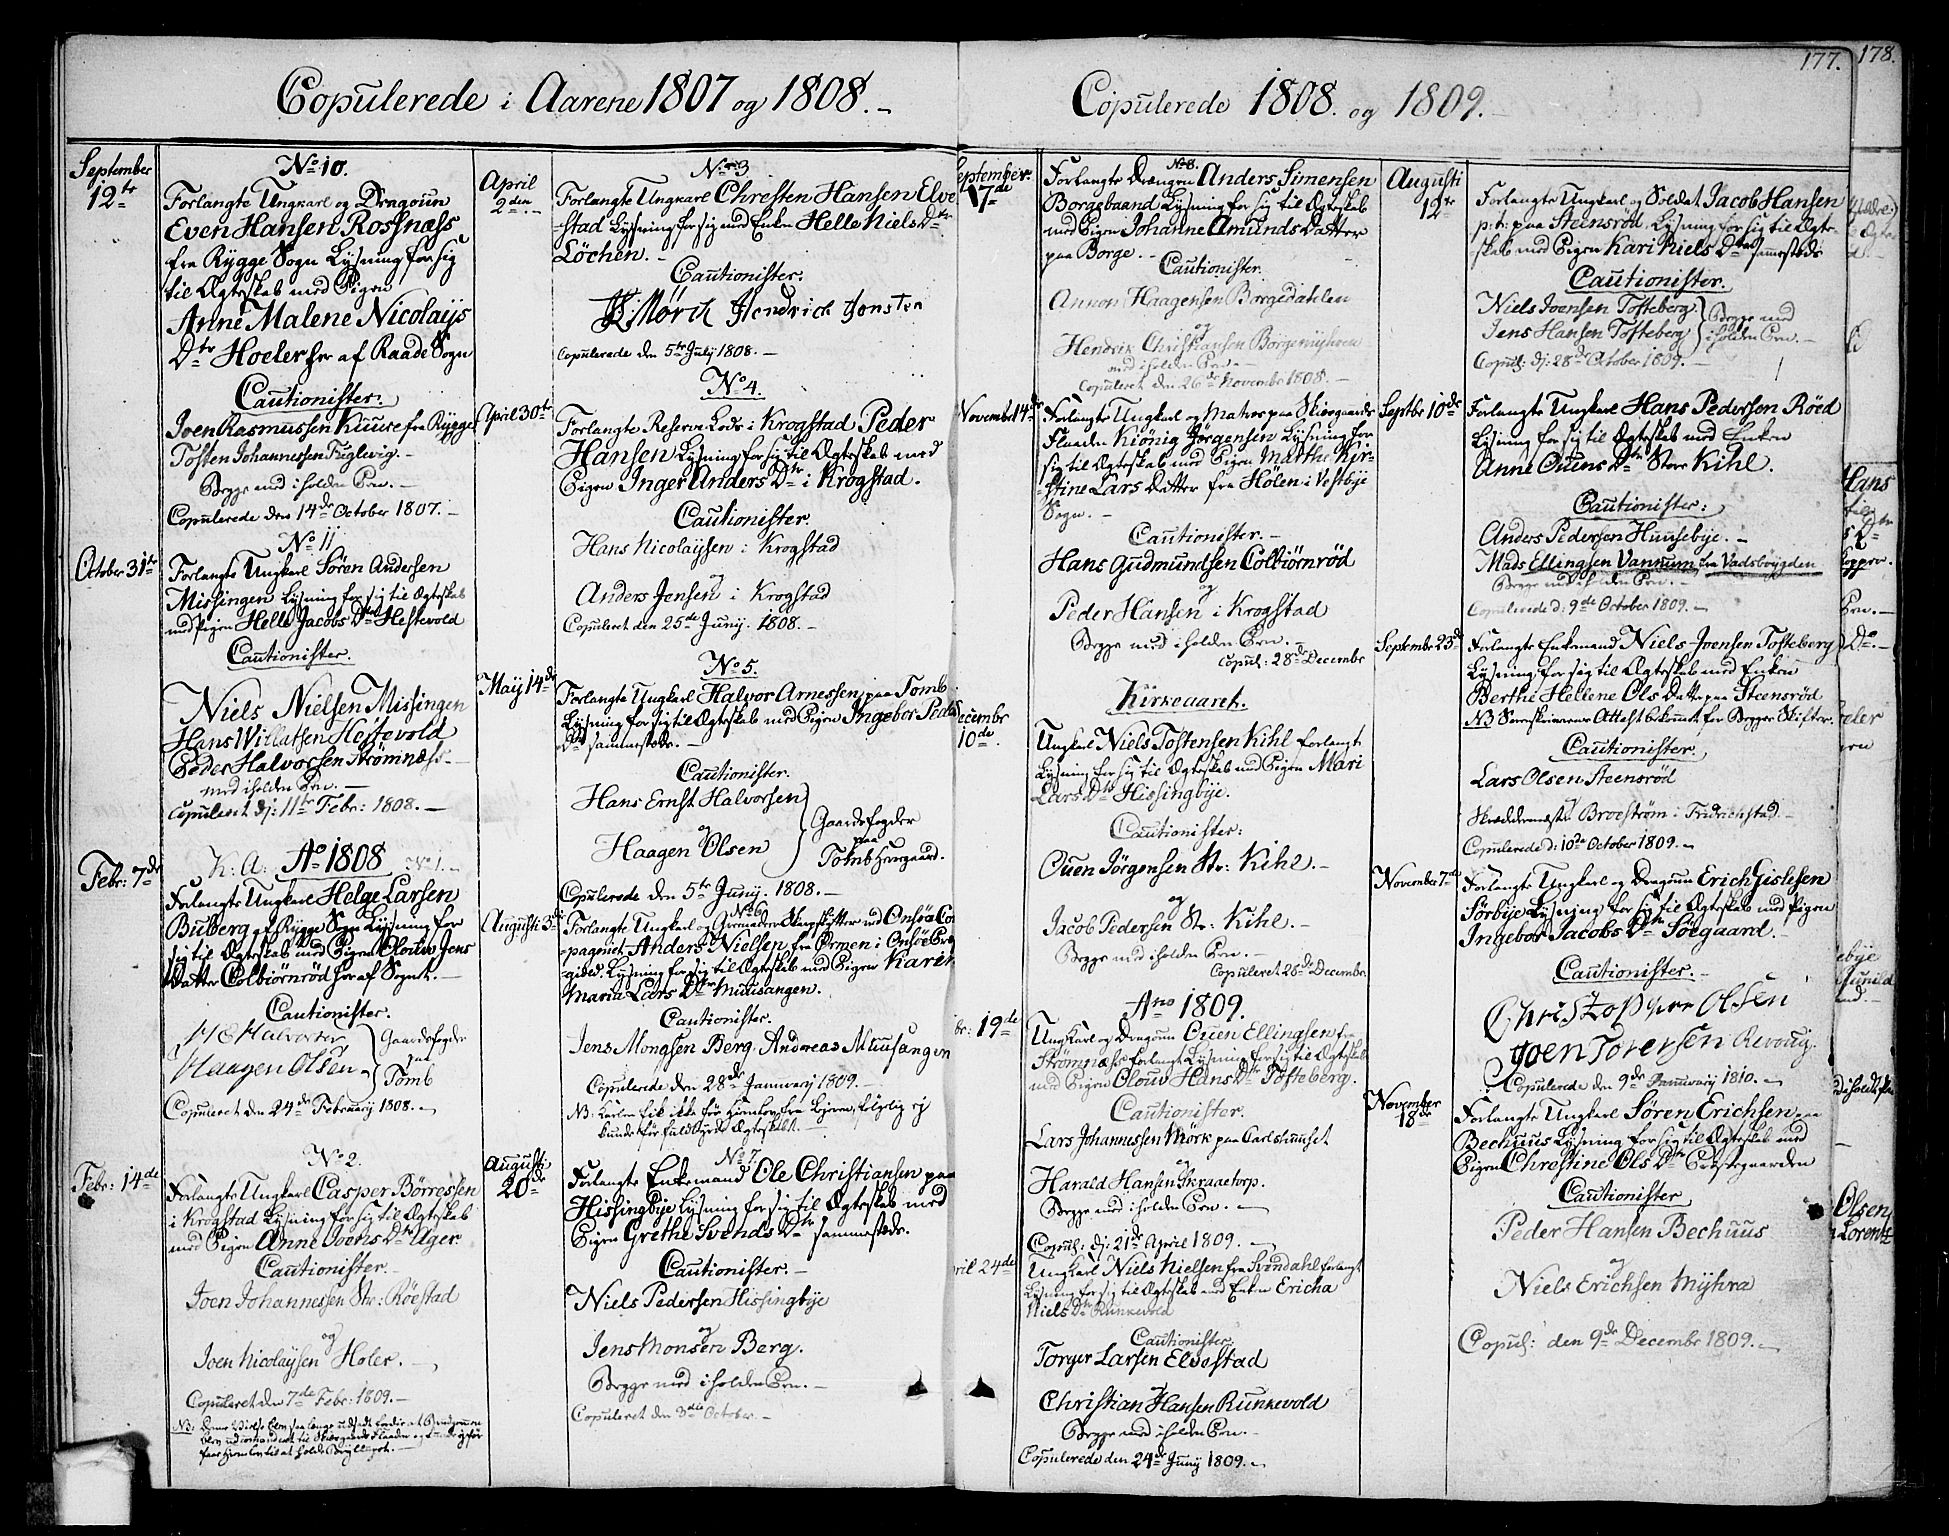 Copulerede i Aarene 1807 og 1808.
September
12te
No. 10.
Forlangte Ungkarl og Dragoun
Even Hansen Rossnæss
fra Rygge Sogn Lysning for sig
til Ægteskab med Pigen
Anne Malene Nicolays
Dtr Hoeler her af Raade Sogn
Cautionister.
Joen Rasmussen Kuure fra Rygge
Tosten Johannessen Fuglevig.
Begge med iholden Pen.
Copulerede den 14de October 1807.
October 31te
No. 11
Forlangte Ungkarl Søren Andersen
Missingen Lysning for sig til Ægteskab
med Pigen Helle Jacobs Dtr Hestevold
Cautionister.
Niels Nielsen Missingen
Hans Willatsen Hestevold
Peder Halvorsen Strømnæss.
med iholden Pen.
Copuleret d: 11te Febr: 1808.
Febr: 7de
K: A: Ao 1808 No 1.
Forlangte Ungkarl Helge Larsen
Buberg af Rygge Sogn Lysning for
sig til Ægteskab med Pigen Olouv Jens
Datter Colbiørnrød her af Sognet.
Cautionister.
H E Halvorsen
Haagen Olsen
Gaardsfogder
paa
Tomb
Copuleret den 24de Februarij 1808.
Febr: 14de
No. 2.
Forlangte Ungkarl Casper Børresen
i Krogstad Lysning for sig til Ægteskab
med Pigen Anne Joens Dtr Uger
Cautionister.
Joen Johannessen Str: Röestad
og
Joen Nicolaysen Holer.
Copuleret den 7de Febr: 1809.
April
2den
No. 3
Forlangte Ungkarl Chresten Hansen Elve
stad Lysning for sig med Enken Helle Niels Dtr
Löchen.
Cautionister.
Mørch Hendrich Jensen
Copulerede den 5te July 1808.
April 30te
No. 4.
Forlangte Reserve-Lods i Krogstad Peder
Hansen Lysning for sig til Ægteskab med
Pigen Inger Anders Dtr i Krogstad.
Cautionister.
Hans Nicolaysen i Krogstad
og
Anders Jensen i Krogstad
Copuleret den 25de Junij. 1808.
May 14de
No. 5.
Forlangte Ungkarl Halvor Arnessen paa Tomb
Lysning for sig til Ægteskab med Pigen Ingebor Peders
Dtr sammestæds.
Cautionister.
Hans Ernst Halvorsen
og
Haagen Olsen
Gaardsfogder
paa
Tomb Herregaard.
Copulerede den 5te Junij. 1808.
Augusti 3de
No. 6.
Forlangte Ungkarl og Grenadeer Skarpskytter ved Onsöe Com
pagniet Anders Nielsen fra Ørmen i Onsöe Præ
gield. Lysning for sig til Ægteskab med Pigen Karen
Maria Lars Dtr Muusangen.
Cautionister.
Jens Mongsen Berg. Andreas Muusangen
Copulerede den 28de Januarij 1809.
NB: Karlen fik ikke før Hiemlov fra Lejren, følgelig ej
kunde før fuldbyrde Ægteskabet.
Augusti
20de
No. 7.
Forlangte Enkemand Ole Christiansen paa
Hissingbije Lysning for sig til Ægteskab med
Pigen Grethe Svends Dtr sammestæds.
Cautionister.
Niels Pedersen Hissingbije
og
Jens Monsen Berg.
Begge med iholden Pen.
Copuleret den 3die October.
Copulerede 1808. og 1809.
177.
178.
September.
17de
No. 8.
Forlangte Drængen Anders Simensen
Borgebaand Lysning for sig til Ægteskab
med Pigen Johanne Amunds Datter
paa Borge.
Cautionister.
Annon Haagensen Borgedahlen
og
Hendrik Christiansen Borgemyhren
med iholden Pen.
Copuleret den 26de Novembr 1808.
Novembr 14de
Forlangte Ungkarl og Matros paa Skiergaards
Flaaden Kiönig Jörgensen Lysning for
sig til Ægteskab med Pigen Marthe Kir-
stine Lars Datter fra Hölen i Vestbye
Sogn.
Cautionister.
Hans Gudmundsen Colbiörnröd
og
Peder Hansen i Krogstad
Begge med iholden Pen.
Copul: 28de Decembr
Kirkeaaret.
Decembr
10de.
Ungkarl Niels Tostensen Kihl forlangt
Lysning for sig til Ægteskab med Pigen Mari
Lars Dtr Hissingbye.
Cautionister:
Ouen Jörgensen Str: Kihl.
og
Jacob Pedersen Str: Kihl.
Begge med iholden Pen.
Copuleret 28de Decembr.
Ano 1809.
br: 19de
Ungkarl og Dragoun Ouen Ellingsen fra
Strömnæss forlangt Lysning for sig til Ægteskab
med Pigen Olouv Hans Dtr Tofteberg.
Cautionister.
Lars Johannessen Mörk paa Carlshuuset
og
Harald Hansen Skraatorp.
Begge med iholden Pen.
Copul: d: 21de April 1809.
April 24de
Ungkarl Niels Nielsen fra Svindahl forlangt
Lysning for sig til Ægteskab med Enken Ericha
Niels Dtr Runkevold
Cautionister
Torger Larsen Elvestad
og
Christian Hansen Runkevold
Begge med iholden Pen.
Copulerede den 24de Junij 1809.
Augusti
12te
Forlangte Ungkarl og Soldat Jacob Hansen
p: t: paa Steensröd, Lysning for sig til Ægte-
skab med Pigen Kari Niels Dtr sammestæds
Cautionister.
Niels Joensen Tofteberg
Jens Hansen Tofteberg
Begge med
iholden Pen.
Copul: d: 28de October 1809.
Septbr 10de
Forlangte Ungkarl Hans Pedersen Röed
Lysning for sig til Ægteskab med Enken
Anne Ouens Dtr Store Kihl.
Cautionister:
Anders Pedersen Huusebye.
Mads Ellingsen Vannum fra Vadsböygden
Begge med iholden Pen.
Copulerede d: 9de October 1809.
Septembr 23de
Forlangte Enkemand Niels Joensen Tofteberg
Lysning for sig til Ægteskab med Enken
Berthe Hellene Ols Datter paa Steensröd
NB Sorenskriverens Attest bekomet for Begges Skifter.
Cautionister.
Lars Olsen Steensröd
og
Skræddermester Broeström i Fridrichstad.
Copulerede d: 10de October 1809.
November 7de
Forlangte Ungkarl og Dragoun Erich Gislesen
Sörbye Lysning for sig til Ægteskab med Pigen
Ingebor Jacobs Dtr Söegaard.
Cautionister.
Christopher Olsen
Joen Toresen Revoug.
Copulerede den 9de Januarij 1810.
November
18de
Forlangte Ungkarl Sören Erichsen paa
Bechuus Lysning for sig til Ægteskab med
Pigen Chrestine Ols Dtr Prestegaarden
Cautionister
Peder Hansen Bechuus
og
Niels Erichsen Myhra
Copul: den 9de Decembr 1809.
Hans
Olsen
Lorentz